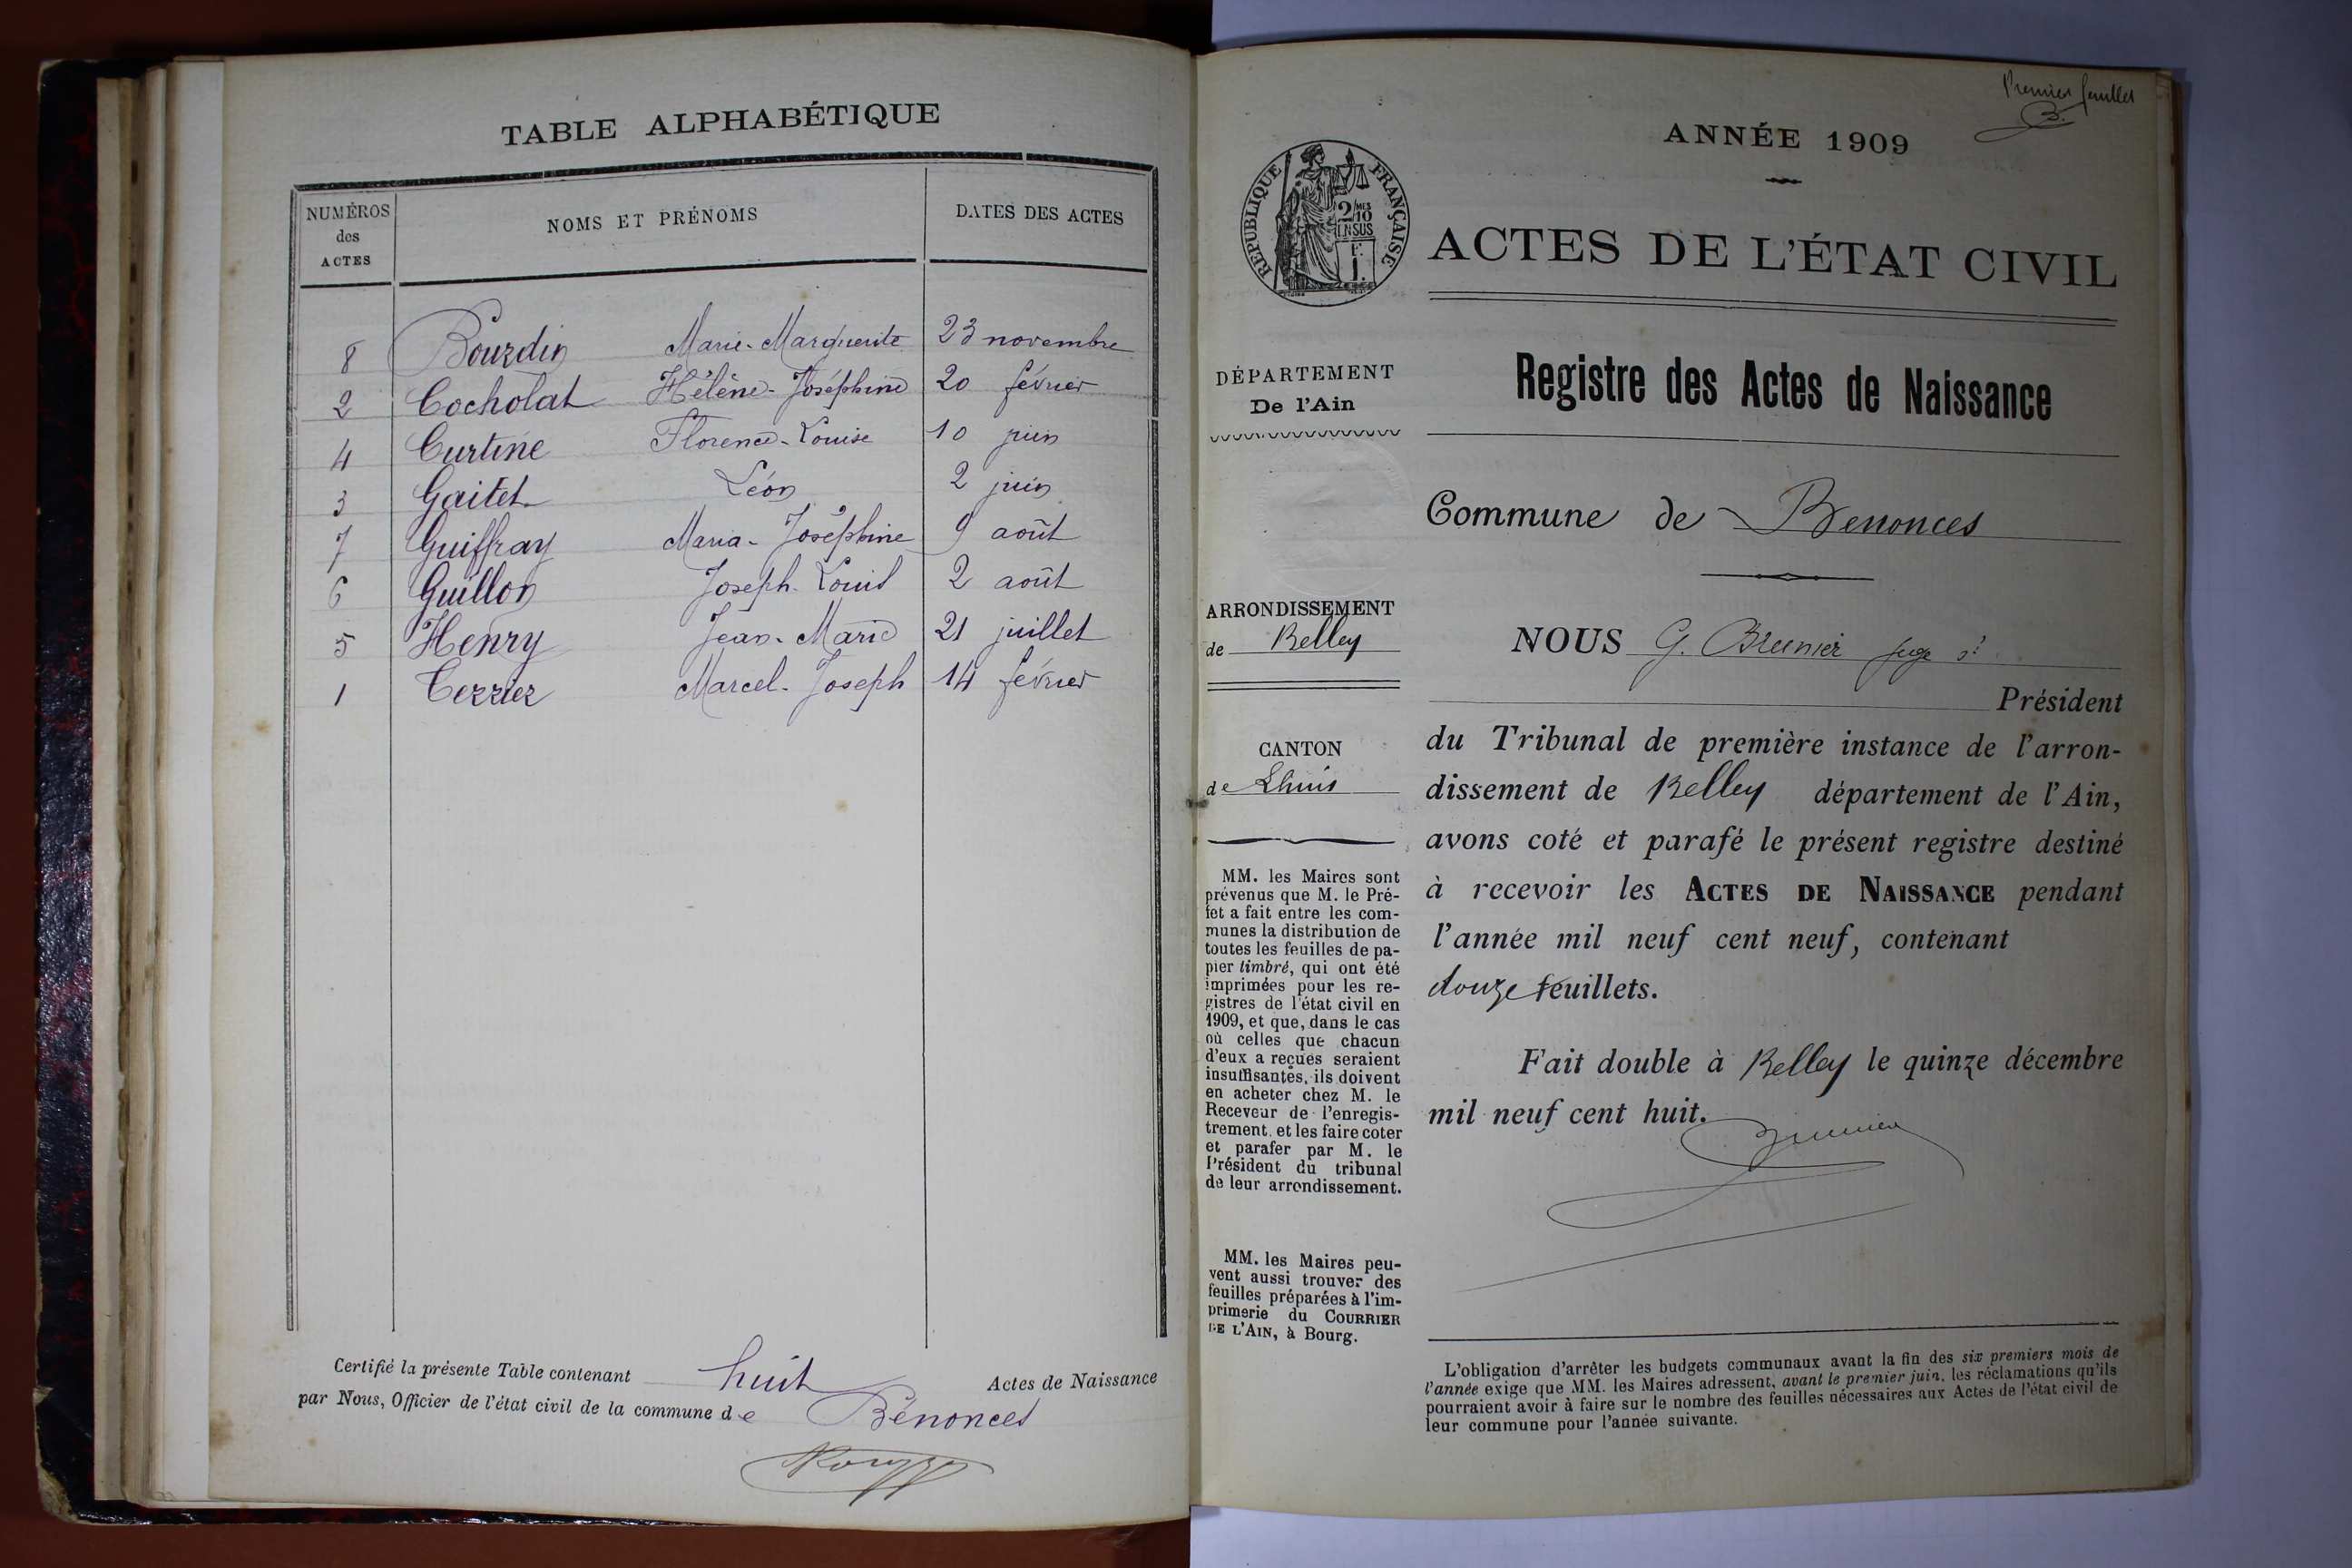 TABLE ALPHABÉTIQUE
NUMÉROS des ACTES NOMS ET PRÉNOMS DATES DES ACTES
8 Bourdin Marie-Marguerite 23 novembre
2 Cocholat Hélène-Joséphine 20 février
4 Curtine Florence-Louise 10 juin
3 Gaitet Léon 2 juin
7 Guiffray Maria-Joséphine 9 août
6 Guillon Joseph-Louis 2 août
5 Henry Jean-Marie 21 juillet
1 Terrier Marcel-Joseph 14 février
Certifié la présente Table contenant huit Actes de Naissance
par Nous, Officier de l'état civil de la commune de Bénonces
Premier feuillet
B.
ANNÉE 1909
RÉPUBLIQUE FRANÇAISE
2/10 MES
EN SUS
F.
1.
ACTES DE L'ÉTAT CIVIL
Registre des Actes de Naissance
DÉPARTEMENT
De l'Ain
Commune de Benonces
ARRONDISSEMENT
de Belley
CANTON
de Lhuis
MM. les Maires sont
prévenus que M. le Pré-
fet a fait entre les com-
munes la distribution de
toutes les feuilles de pa-
pier timbré, qui ont été
imprimées pour les re-
gistres de l'état civil en
1909, et que, dans le cas
où celles que chacun
d'eux a reçues seraient
insuffisantes, ils doivent
en acheter chez M. le
Receveur de l'enregis-
trement, et les faire coter
et parafer par M. le
Président du tribunal
de leur arrondissement.
MM. les Maires peu-
vent aussi trouver des
feuilles préparées à l'im-
primerie du COURRIER
DE L'AIN, à Bourg.
NOUS G. Brunier juge
Président
du Tribunal de première instance de l'arron-
dissement de Belley département de l'Ain,
avons coté et parafé le présent registre destiné
à recevoir les ACTES DE NAISSANCE pendant
l'année mil neuf cent neuf, contenant
douze feuillets.
Fait double à Belley le quinze décembre
mil neuf cent huit.
Brunier
L'obligation d'arrêter les budgets communaux avant la fin des six premiers mois de
l'année exige que MM. les Maires adressent, avant le premier juin, les réclamations qu'ils
pourraient avoir à faire sur le nombre des feuilles nécessaires aux Actes de l'état civil de
leur commune pour l'année suivante.